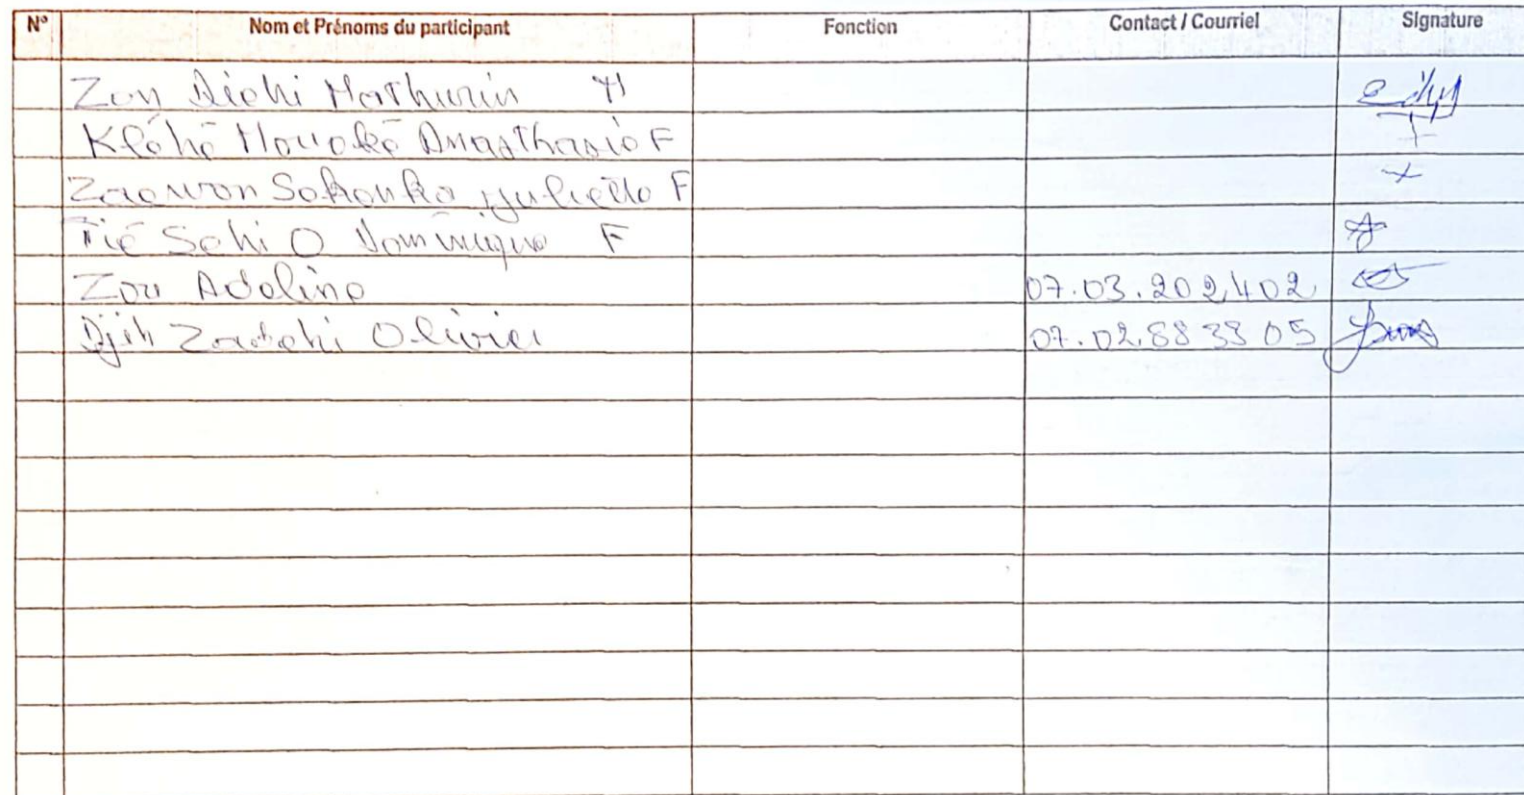 N° Nom et Prénoms du participant Fonction Contact / Courriel Signature
Zon Diehi Mathurin M
Kléhé Monoké Anasthasie F
Zaowon Sokonko Juliette F
Tié Sehi O Dominique F
Zou Adeline 07.03.202402
Djih Zadehi Olivier 07.02.88 38 05